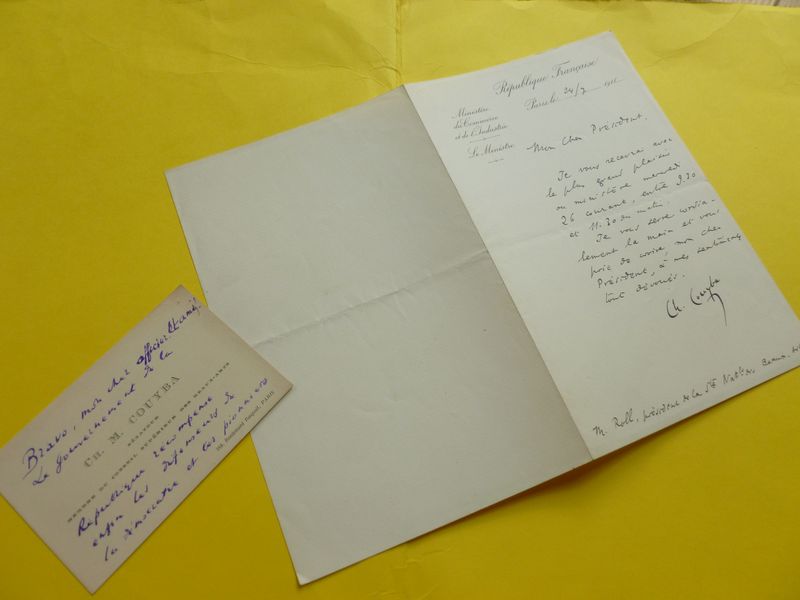 République Française
Ministère
du Commerce
et de l'Industrie
Le Ministre
Paris le 24/7 1911
Mon Cher Président,
Je vous recevrai avec
le plus grand plaisir
au ministère mercredi
26 courant, entre 9.30
et 11.30 du matin.
Je vous serre cordia-
lement la main et vous
prie de croire, mon cher
Président, à mes sentiments
tout dévoués.
Ch. Couyba
M. Roll, président de la Sté Nat
Bravo, mon cher officier
Le gouvernement de la
CH. M. COUYBA
SÉNATEUR
MEMBRE DU CONSEIL SUPÉRIEUR DES BEAUX-ARTS
République récompense
enfin les défenseurs de
la démocratie et les pionniers
PARIS